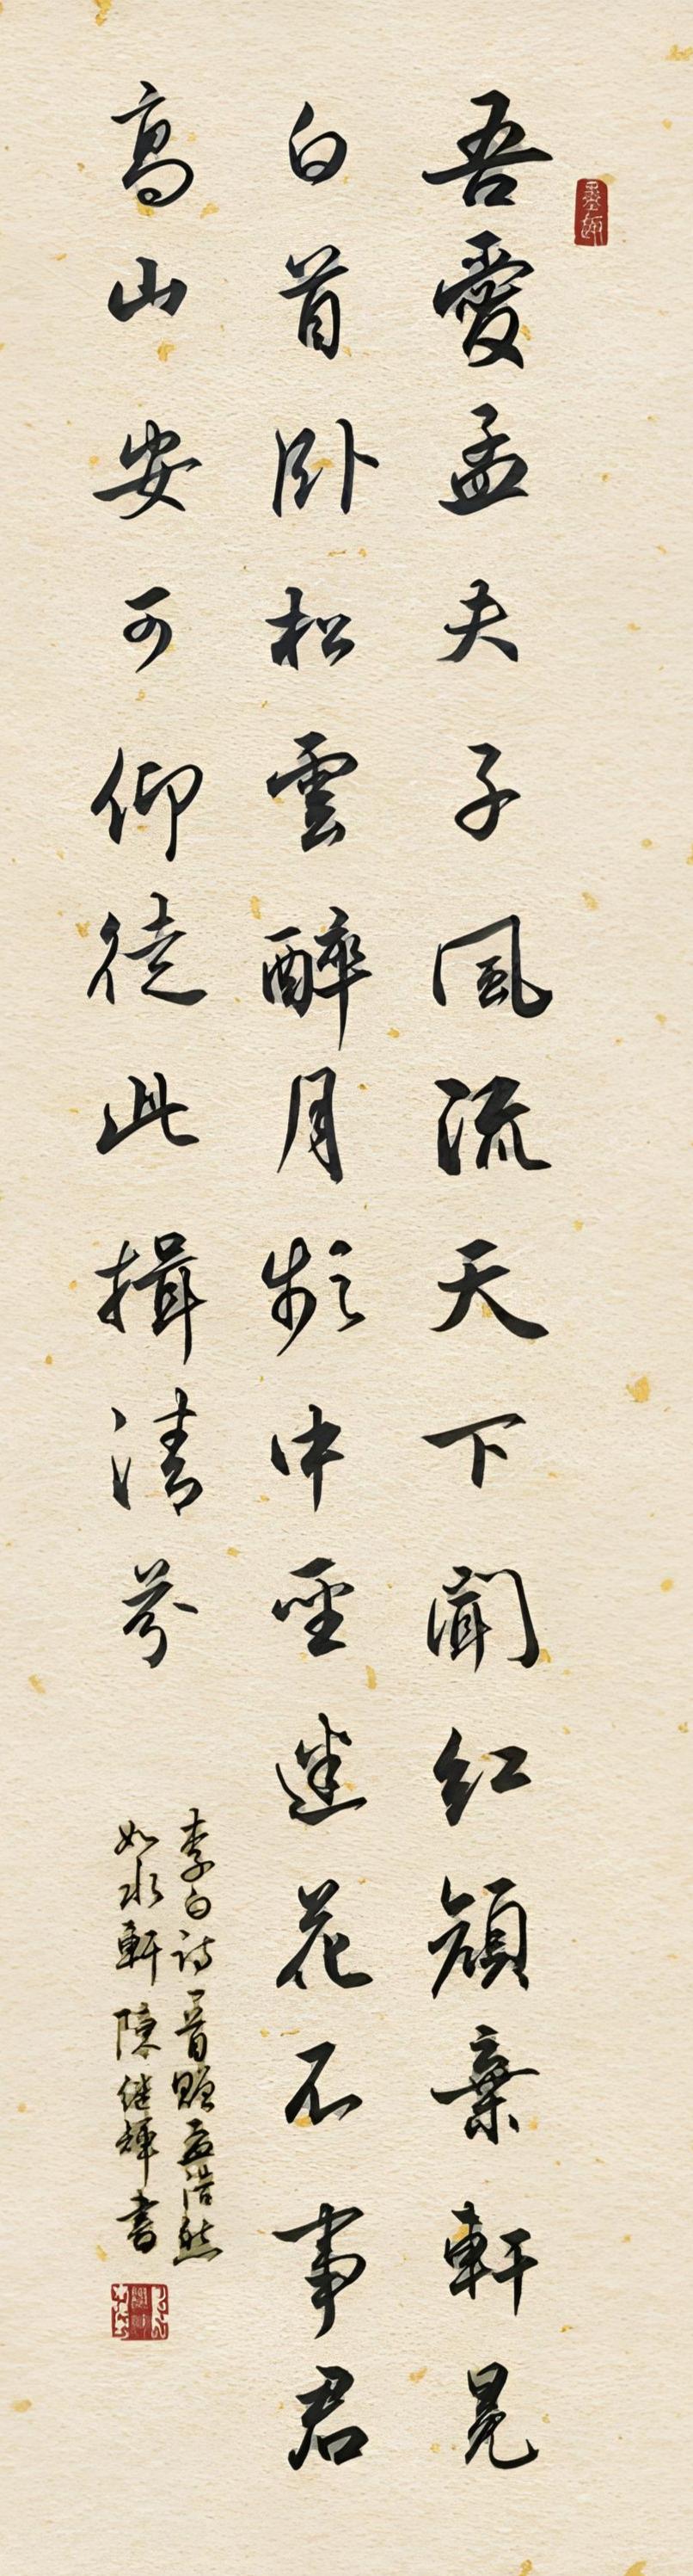 吾愛孟夫子風流天下聞紅顔棄軒冕
白首卧松雲醉月頻中聖迷花不事君
高山安可仰徒此揖清芬
李白詩一首贈孟浩然
如水軒陳继輝書